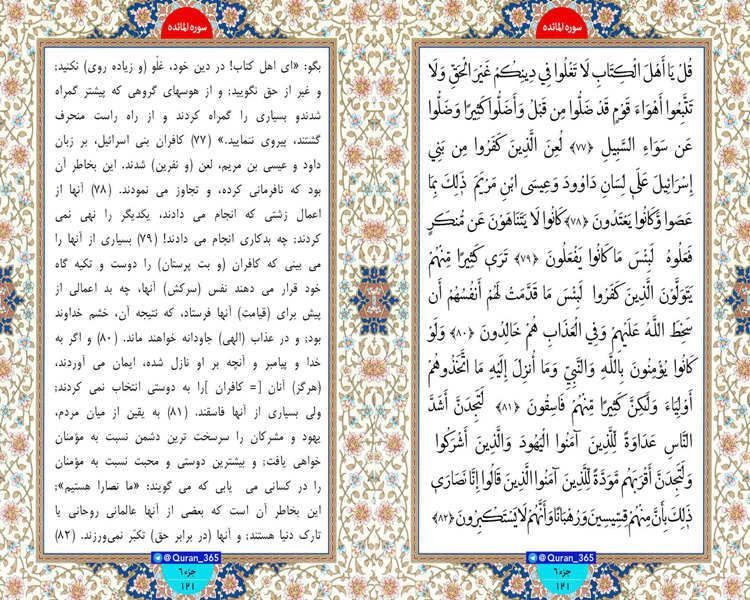 سوره المائده
قُلْ يَا أَهْلَ الْكِتَابِ لَا تَغْلُوا فِي دِينِكُمْ غَيْرَ الْحَقِّ وَلَا
تَتَّبِعُوا أَهْوَاءَ قَوْمٍ قَدْ ضَلُّوا مِن قَبْلُ وَأَضَلُّوا كَثِيرًا وَضَلُّوا
عَن سَوَاءِ السَّبِيلِ ﴿٧٧﴾ لُعِنَ الَّذِينَ كَفَرُوا مِن بَنِي
إِسْرَائِيلَ عَلَىٰ لِسَانِ دَاوُودَ وَعِيسَى ابْنِ مَرْيَمَ ذَٰلِكَ بِمَا
عَصَوا وَّكَانُوا يَعْتَدُونَ ﴿٧٨﴾ كَانُوا لَا يَتَنَاهَوْنَ عَن مُّنكَرٍ
فَعَلُوهُ لَبِئْسَ مَا كَانُوا يَفْعَلُونَ ﴿٧٩﴾ تَرَىٰ كَثِيرًا مِّنْهُمْ
يَتَوَلَّوْنَ الَّذِينَ كَفَرُوا لَبِئْسَ مَا قَدَّمَتْ لَهُمْ أَنفُسُهُمْ أَن
سَخِطَ اللَّهُ عَلَيْهِمْ وَفِي الْعَذَابِ هُمْ خَالِدُونَ ﴿٨٠﴾ وَلَوْ
كَانُوا يُؤْمِنُونَ بِاللَّهِ وَالنَّبِيِّ وَمَا أُنزِلَ إِلَيْهِ مَا اتَّخَذُوهُمْ
أَوْلِيَاءَ وَلَٰكِنَّ كَثِيرًا مِّنْهُمْ فَاسِقُونَ ﴿٨١﴾ لَتَجِدَنَّ أَشَدَّ
النَّاسِ عَدَاوَةً لِّلَّذِينَ آمَنُوا الْيَهُودَ وَالَّذِينَ أَشْرَكُوا
وَلَتَجِدَنَّ أَقْرَبَهُم مَّوَدَّةً لِّلَّذِينَ آمَنُوا الَّذِينَ قَالُوا إِنَّا نَصَارَىٰ
ذَٰلِكَ بِأَنَّ مِنْهُمْ قِسِّيسِينَ وَرُهْبَانًا وَأَنَّهُمْ لَا يَسْتَكْبِرُونَ ﴿٨٢﴾
@Quran_365
جزء ۶
۱۲۱
سوره المائده
بگو: «ای اهل کتاب! در دین خود، غلّو (و زیاده روی) نکنید;
و غیر از حق نگویید; و از هوسهای گروهی که پیشتر گمراه
شدندو بسیاری را گمراه کردند و از راه راست منحرف
گشتند، پیروی ننمایید.» (۷۷) کافران بنی اسرائیل، بر زبان
داود و عیسی بن مریم، لعن (و نفرین) شدند. این بخاطر آن
بود که نافرمانی کرده، و تجاوز می نمودند. (۷۸) آنها از
اعمال زشتی که انجام می دادند، یکدیگر را نهی نمی
کردند; چه بدکاری انجام می دادند! (۷۹) بسیاری از آنها را
می بینی که کافران (و بت پرستان) را دوست و تکیه گاه
خود قرار می دهند نفس (سرکش) آنها، چه بد اعمالی از
پیش برای (قیامت) آنها فرستاد، که نتیجه آن، خشم خداوند
بود; و در عذاب (الهی) جاودانه خواهند ماند. (۸۰) و اگر به
خدا و پیامبر و آنچه بر او نازل شده، ایمان می آوردند،
(هرگز) آنان [= کافران ]را به دوستی انتخاب نمی کردند;
ولی بسیاری از آنها فاسقند. (۸۱) به یقین از میان مردم،
یهود و مشرکان را سرسخت ترین دشمن نسبت به مؤمنان
خواهی یافت; و بیشترین دوستی و محبت نسبت به مؤمنان
را در کسانی می یابی که می گویند: «ما نصارا هستیم»;
این بخاطر آن است که بعضی از آنها عالمانی روحانی یا
تارک دنیا هستند; و آنها (در برابر حق) تکبّر نمی‌ورزند. (۸۲)
@Quran_365
جزء ۶
۱۲۱